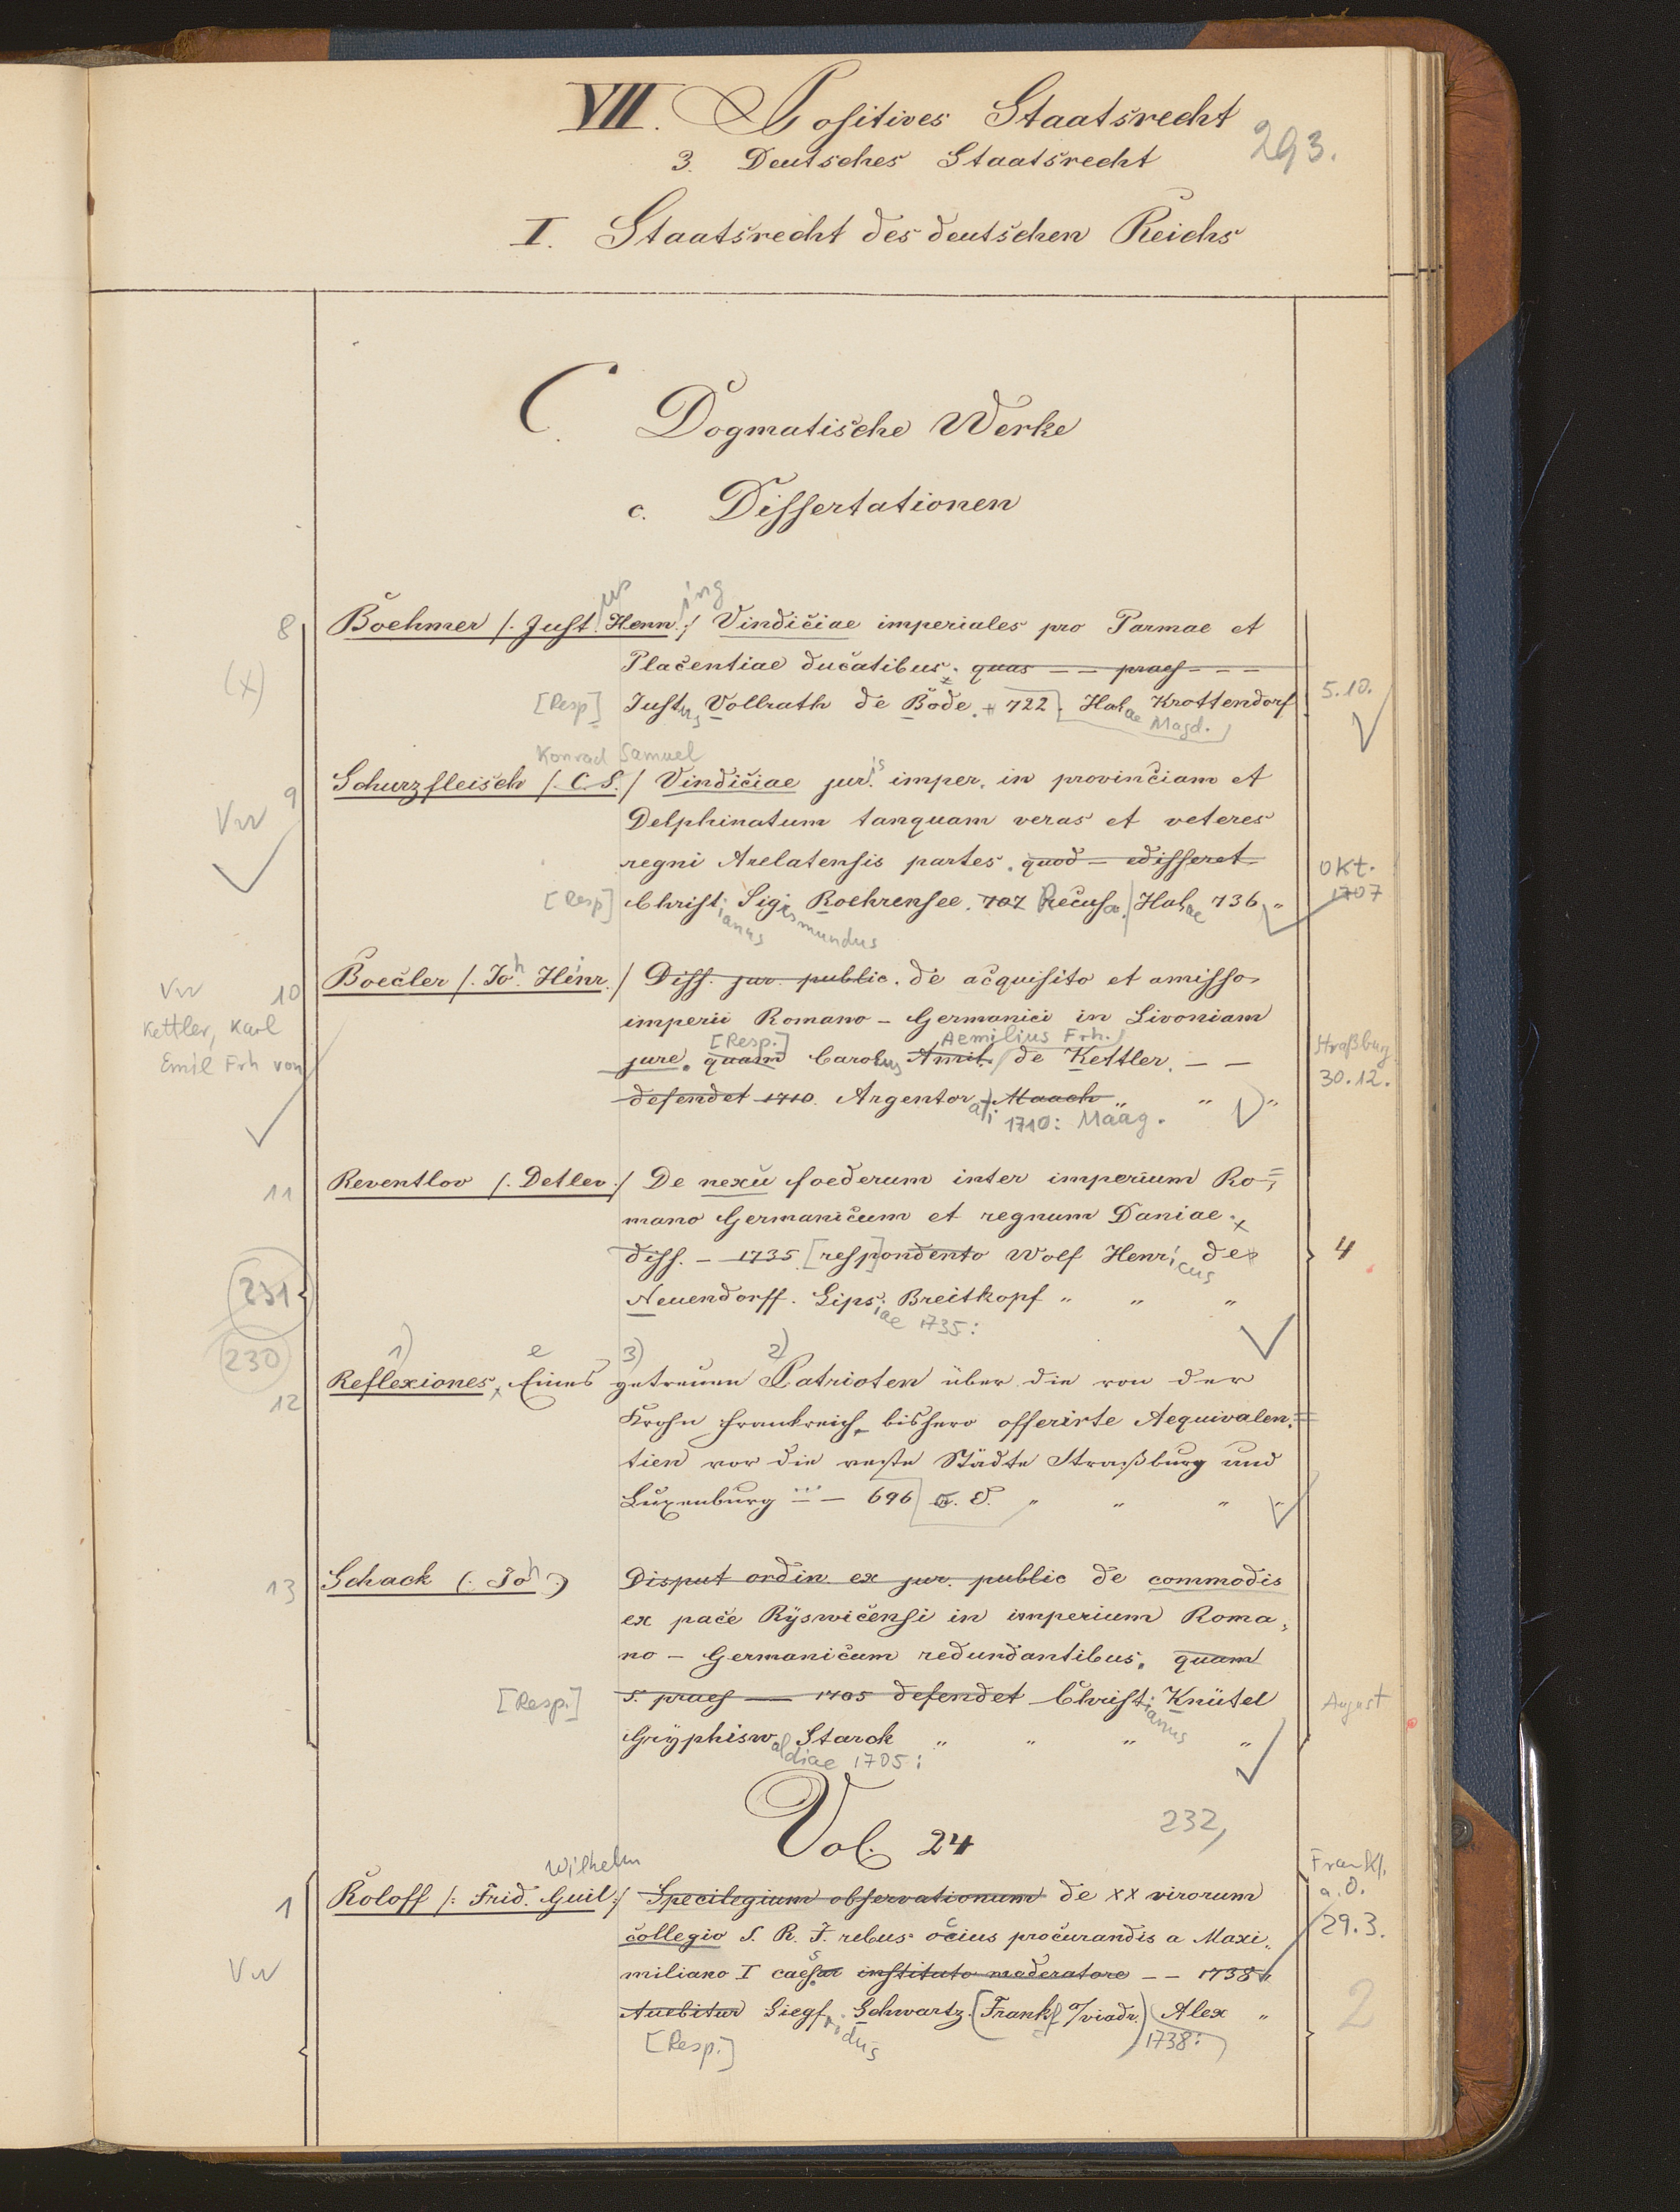 VII. Positives Staatsrecht
293.
3. Deutsches Staatsrecht
I. Staatsrecht des deutschen Reichs
C. Dogmatische Werke
c. Dissertationen
us ing
8 Boehmer /. Just. Henn. / Vindiciae imperiales pro Parmae et
(x) Placentiae ducatibus. quas – – praes – – –
[Resp] Justus Vollrath de Bode. 722. Halae Krottendorf 5.10.
Magd.
Konrad Samuel
9 Schurzfleisch /. C. S. / Vindiciae juris imper. in provinciam et
Vw Delphinatum tanquam veras et veteres
regni Arelatensis partes. quod – edisseret Okt.
[Resp] Christ. Sig. Roehrensee. 707 Recusa. Halae 736 " 1707
ianus ismundus
Vw 10 Boecler /. Joh. Heinr. / Diss. jur. public. de acquisito et amisso
Kettler, Karl imperii Romano – Germanici in Livoniam
Emil Frh von [Resp.] Aemilius Frh. Straßburg
jure. quam Carolus Amil. de Kettler. – – 30.12.
defendet 1710. Argentorati Maach " " "
1710: Maag.
11 Reventlov /. Detlev. / De nexu foederum inter imperium Ro=
mano Germanicum et regnum Daniae.
diss. – 1735 [resp]ondento Wolf Henricus de 4
231 Neuendorff. Lipsiae Breitkopf " " "
1735:
230 1) e 3) 2)
12 Reflexiones, Eines getreuen Patrioten über die von der
Krohn Frankreich bishero offerirte Aequivalen=
tien vor die veste Städte Straßburg und
Luxenburg – 696 o. O. " " " "
13 Schack (. Joh .) Disput ordin. ex jur. public de commodis
ex pace Ryswicensi in imperium Roma,
no – Germanicum redundantibus. quam
[Resp.] s. praes — 1705 defendet Christ. Knütel August
ianus
Gryphisw. Starck " " " "
aldiae 1705:
Vol. 24 232,
Wilhelm Frankf.
1 Roloff /: Frid. Guil :/ Specilegium observationum de XX virorum a. O.
collegio S. R. J. rebus ocius procurandis a Maxi= 29.3.
Vw miliano I caesar instituto moderatore – – 1738
Tuebitur Siegf. Schwartz. (Frankf a/viadr.) Alex " 2
[Resp.] ridus 1738: